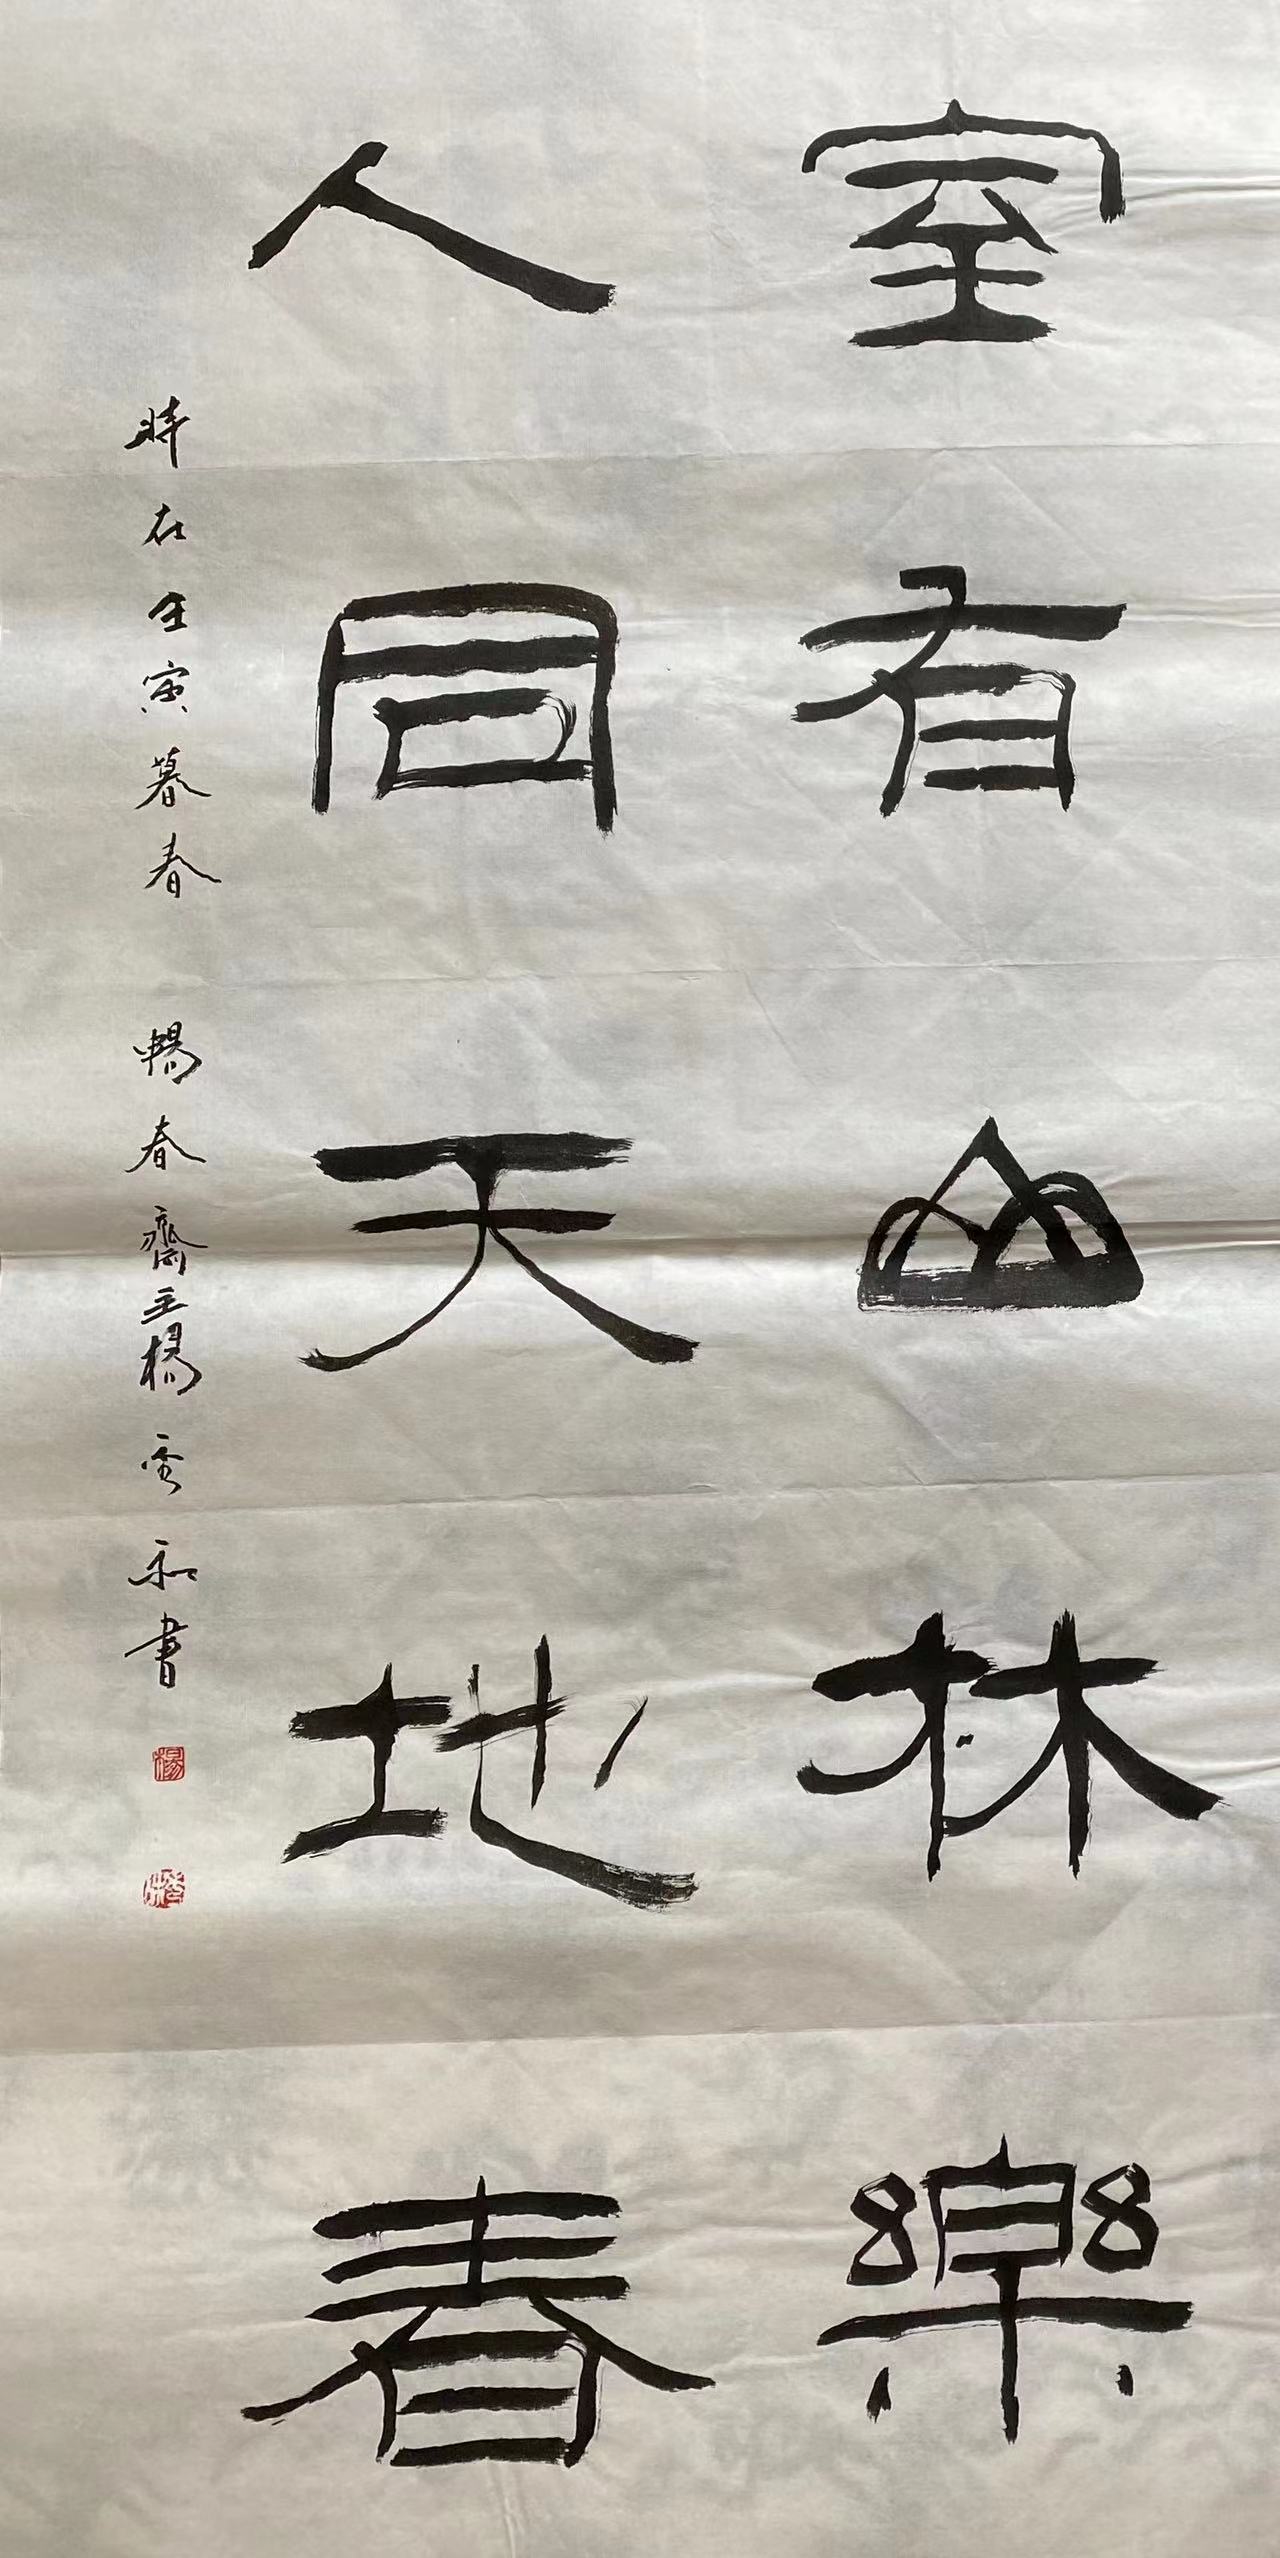 室有山林樂
人同天地春
時在壬寅暮春 暢春齋主楊雲和書
楊